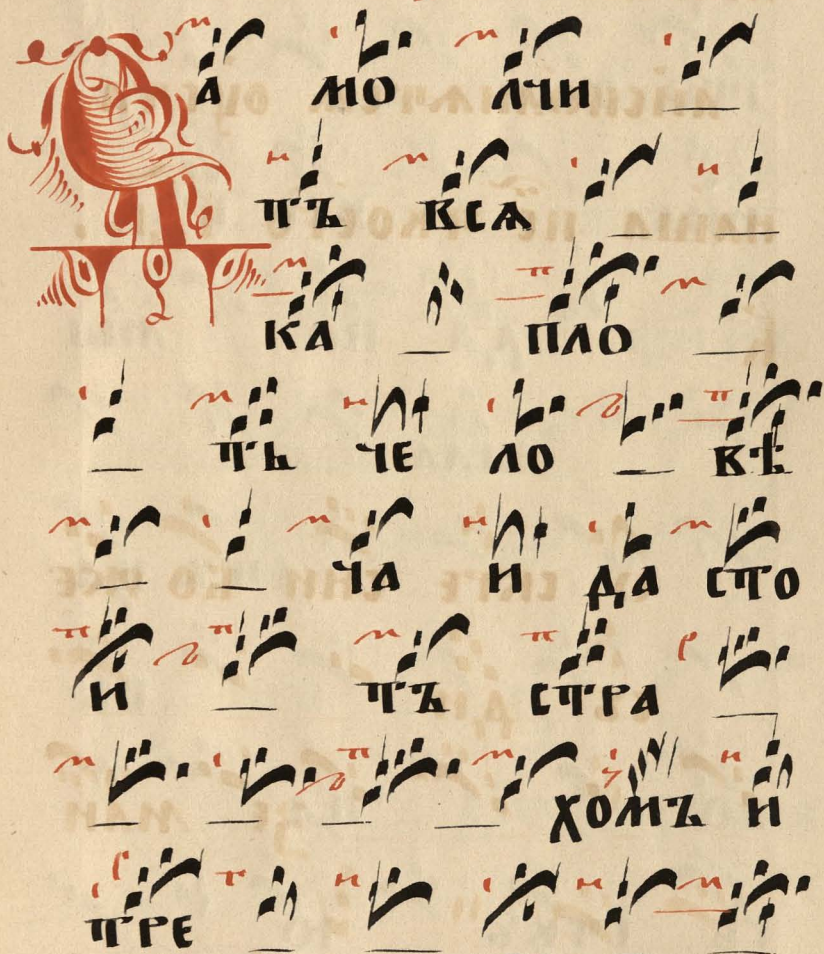 Да мо лчи
тъ вся
ка пло
ть че ло вѣ
ча и да сто
и тъ стра
хомъ и
тре